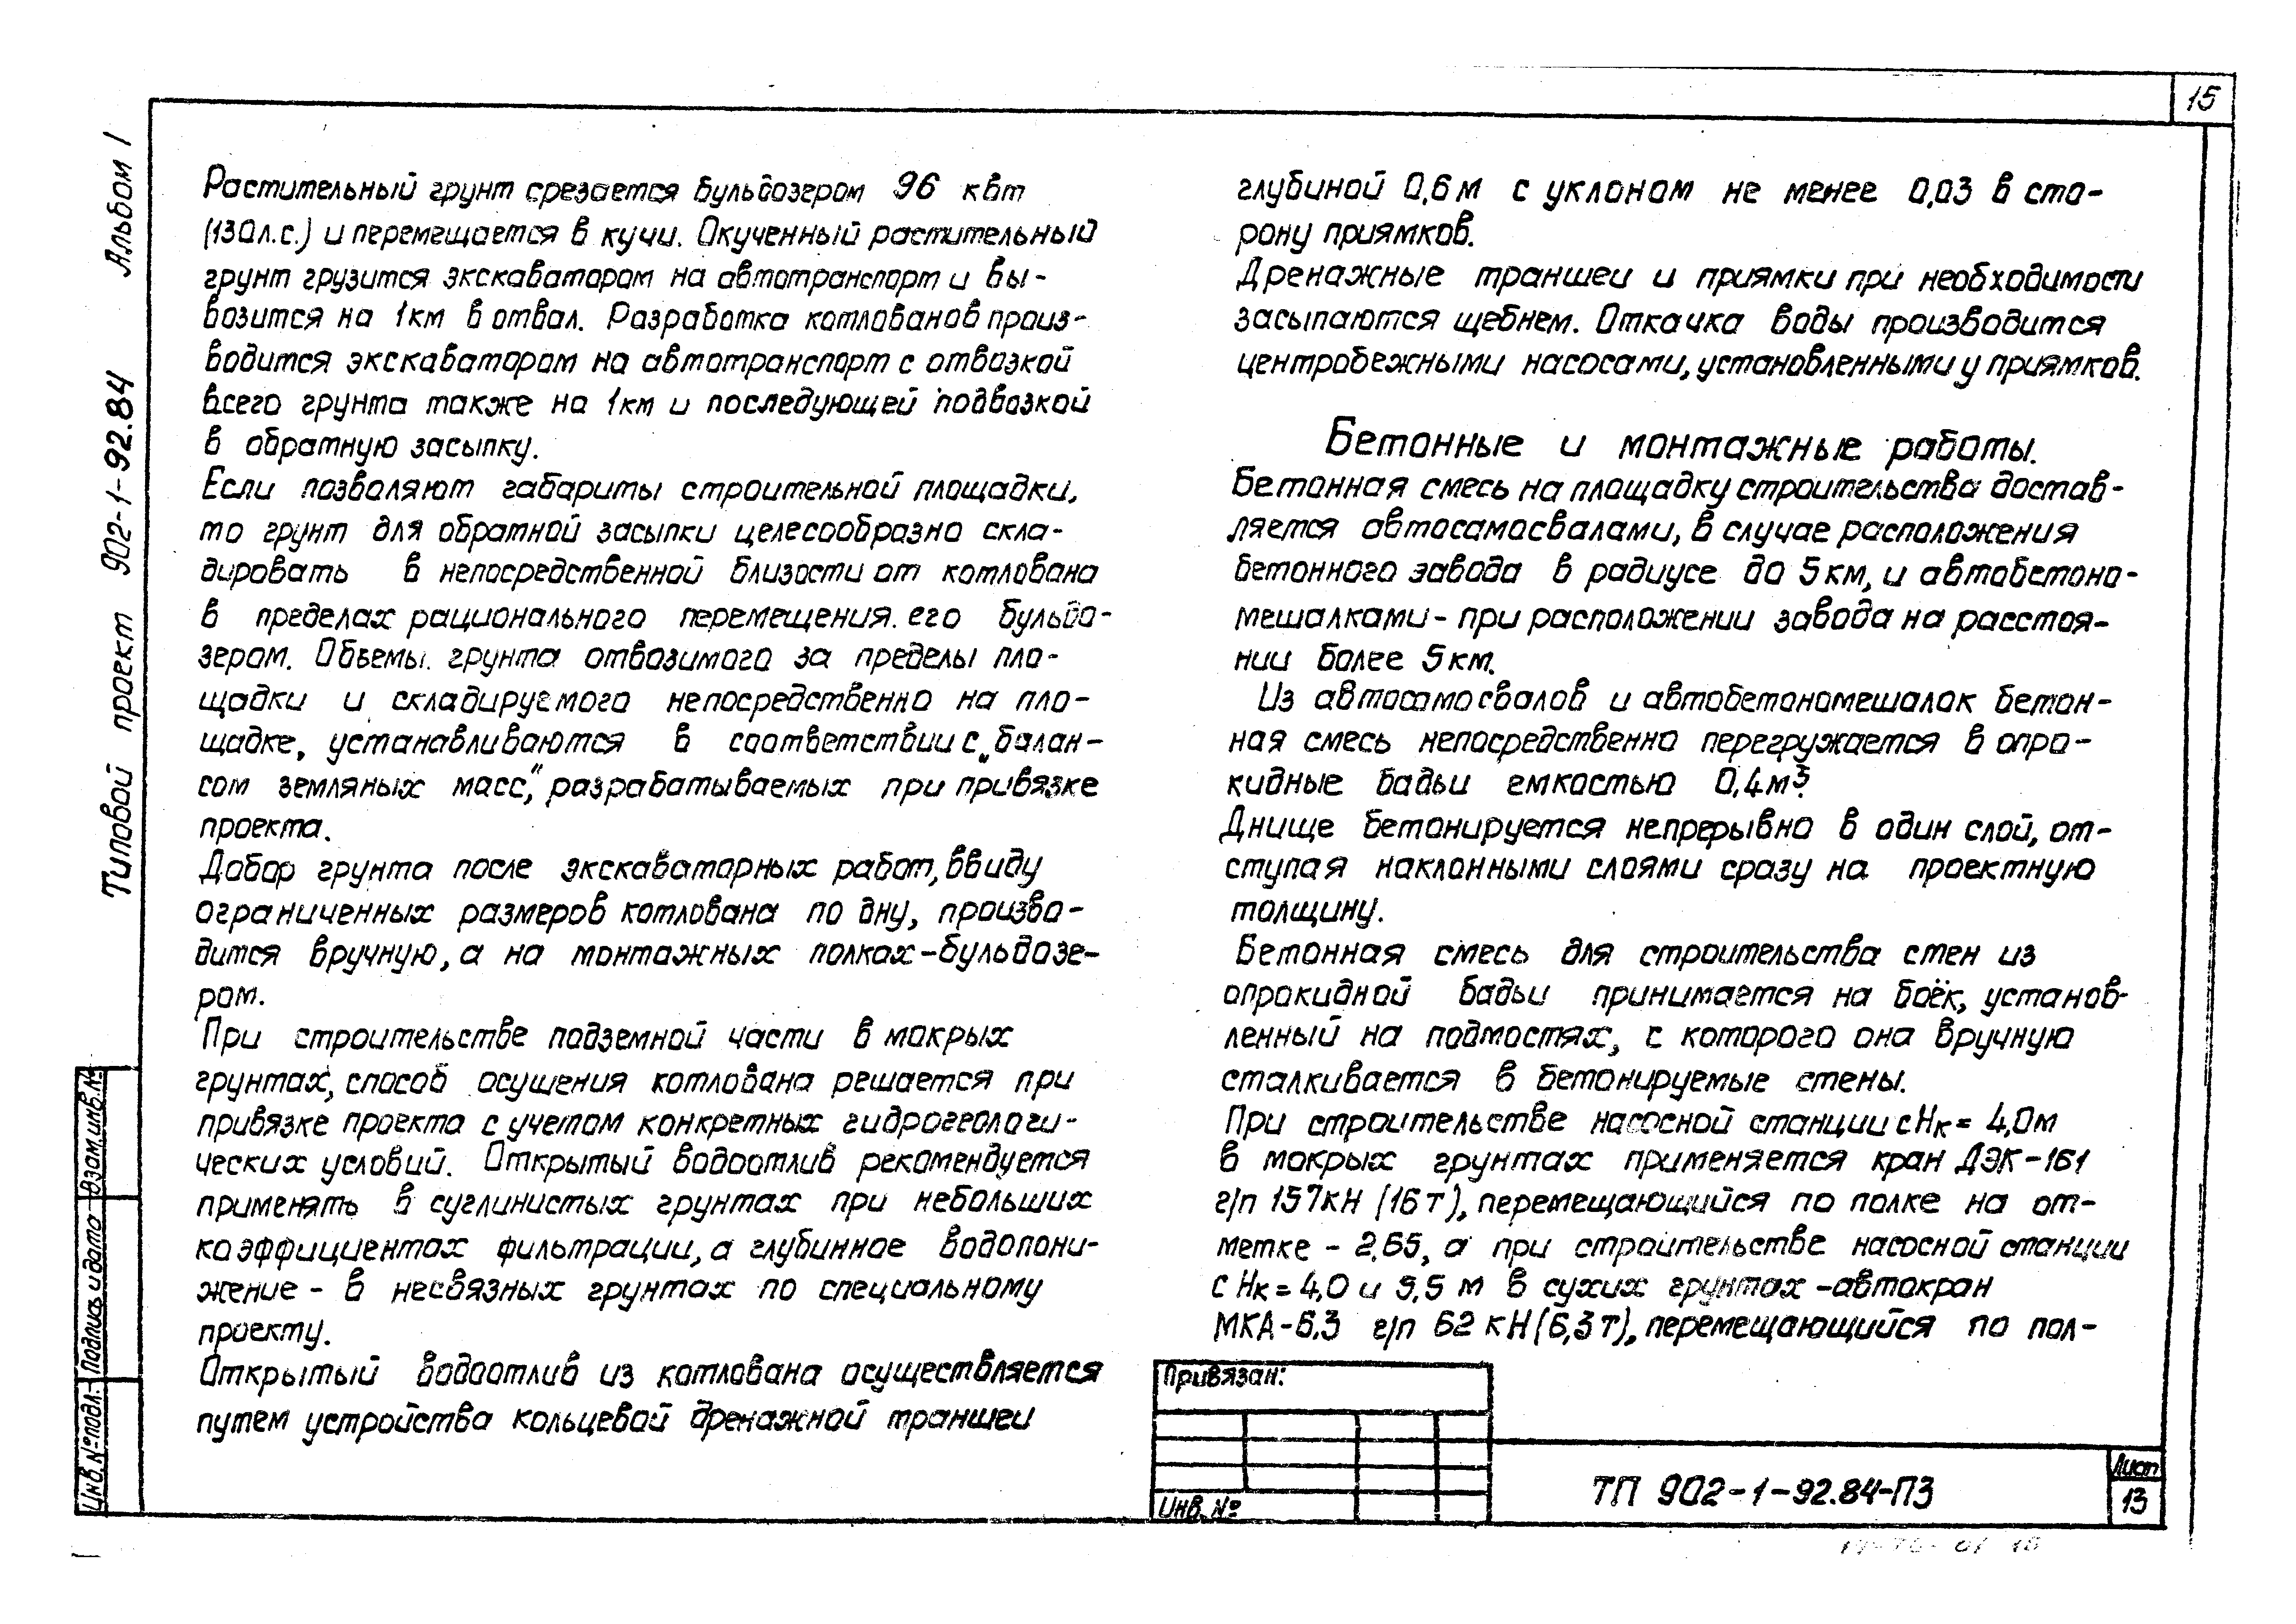 15
Альбом I
Типовой проект 902-1-92.84
Растительный грунт срезается бульдозером 96 квт
(130л.с.) и перемещается в кучи. Окученный растительный
грунт грузится экскаватором на автотранспорт и вы-
возится на 1км в отвал. Разработка котлованов произ-
водится экскаватором на автотранспорт с отвозкой
всего грунта также на 1км и последующей подвозкой
в обратную засыпку.
Если позволяют габариты строительной площадки,
то грунт для обратной засыпки целесообразно скла-
дировать в непосредственной близости от котлована
в пределах рационального перемещения его бульдо-
зером. Объемы грунта отвозимого за пределы пло-
щадки и складируемого непосредственно на пло-
щадке, устанавливаются в соответствии с „балан-
сом земляных масс“, разрабатываемых при привязке
проекта.
Добор грунта после экскаваторных работ, ввиду
ограниченных размеров котлована по дну, произво-
дится вручную, а на монтажных полках-бульдозе-
ром.
При строительстве подземной части в мокрых
грунтах, способ осушения котлована решается при
привязке проекта с учетом конкретных гидрогеологи-
ческих условий. Открытый водоотлив рекомендуется
применять в суглинистых грунтах при небольших
коэффициентах фильтрации, а глубинное водопони-
жение - в несвязных грунтах по специальному
проекту.
Открытый водоотлив из котлована осуществляется
путем устройства кольцевой дренажной траншеи
глубиной 0,6м с уклоном не менее 0,03 в сто-
рону приямков.
Дренажные траншеи и приямки при необходимости
засыпаются щебнем. Откачка воды производится
центробежными насосами, установленными у приямков.
Бетонные и монтажные работы.
Бетонная смесь на площадку строительства достав-
ляется автосамосвалами, в случае расположения
бетонного завода в радиусе до 5км, и автобетоно-
мешалками - при расположении завода на расстоя-
нии более 5км.
Из автосамосвалов и автобетономешалок бетон-
ная смесь непосредственно перегружается в опро-
кидные бадьи емкостью 0,4м³.
Днище бетонируется непрерывно в один слой, от-
ступая наклонными слоями сразу на проектную
толщину.
Бетонная смесь для строительства стен из
опрокидной бадьи принимается на боёк, установ-
ленный на подмостях, с которого она вручную
сталкивается в бетонируемые стены.
При строительстве насосной станции с Нк= 4,0м
в мокрых грунтах применяется кран ДЭК-161
г/п 157кН (16т), перемещающийся по полке на от-
метке - 2.65, а при строительстве насосной станции
с Нк= 4,0 и 5,5 м в сухих грунтах -автокран
МКА-6,3 г/п 62 кН(6,3т), перемещающийся по пол-
Взам.инв.№
Подпись и дата
Инв.№подл.
Привязан:
Инв. №
ТП 902-1-92.84-ПЗ
Лист
13